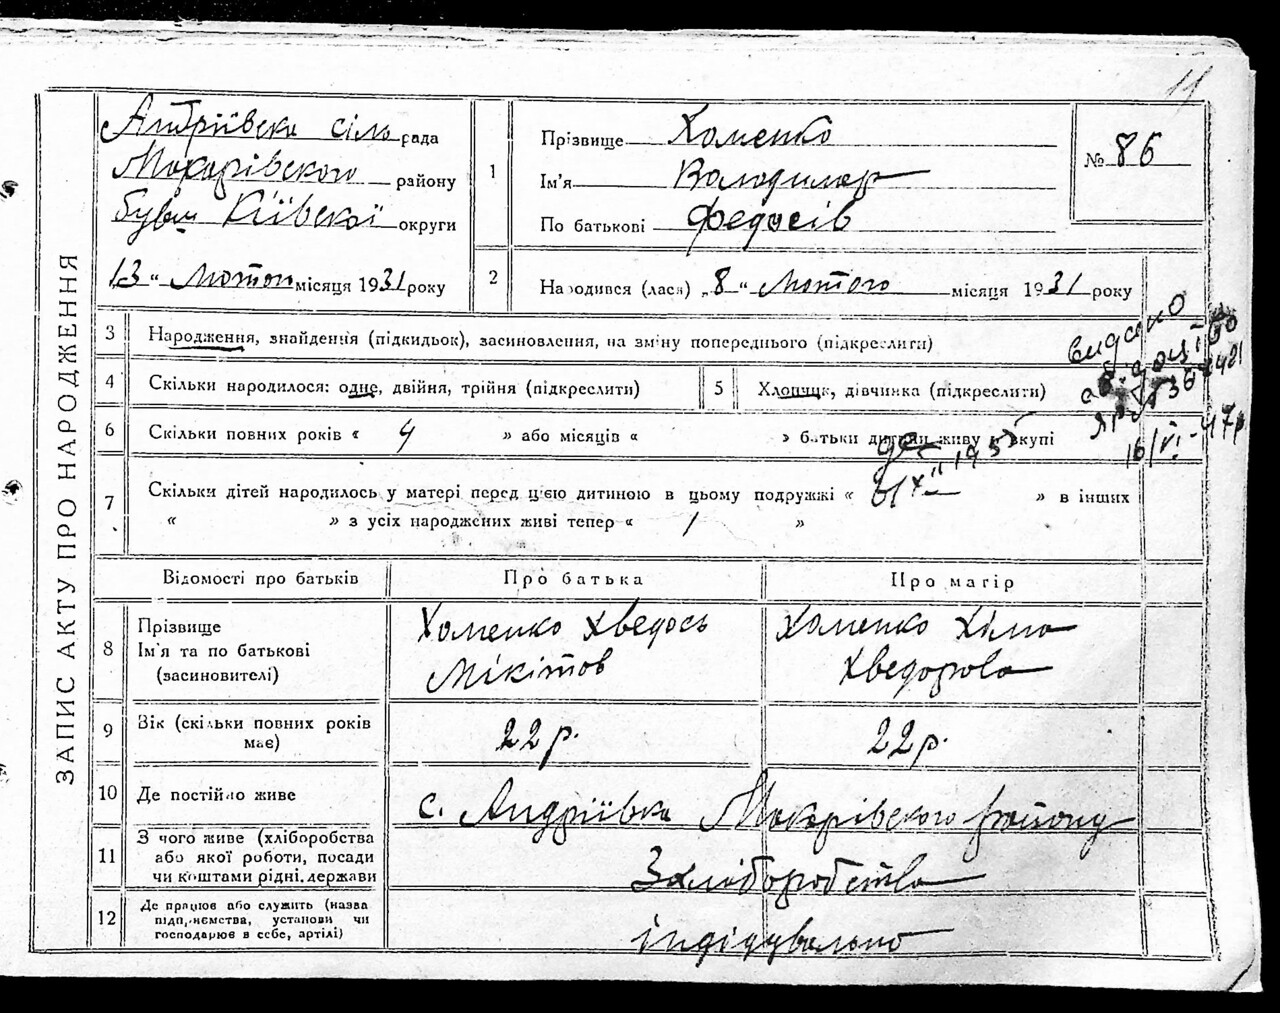 11
ЗАПИС АКТУ ПРО НАРОДЖЕННЯ
Андріївська сіль рада
Макарівського району
бувш Київської округи
13 " Лютого місяця 1931 року
1
Прізвище Хоменко
Ім'я Володимир
По батькові Федосів
№ 86
2
Народився (лася) „ 8 " Лютого місяця 1931 року
3 Народження, знайдення (підкидьок), засиновлення, на зміну попереднього (підкреслити)
4 Скільки народилося: одне, двійня, трійня (підкреслити)
5 Хлопчик, дівчинка (підкреслити)
видано
16/VI-47р
6 Скільки повних років « 4 » або місяців « » батьки дитини живу вкупі
7 Скільки дітей народилось у матері перед цією дитиною в цьому подружжі « » в інших
« » з усіх народжених живі тепер « 1 »
Відомості про батьків Про батька Про матір
8 Прізвище
Ім'я та по батькові
(засиновителі)
Хоменко Хведось
Мікітов
Хоменко Хіма
Хведорова
9 Вік (скільки повних років
має)
22 р. 22 р.
10 Де постійно живе с. Андріївка Макарівського району
11 З чого живе (хліборобства
або якої роботи, посади
чи коштами рідні, держави
З хліборобства
12 Де працює або служить (назва
підприємства, установи чи
господарює в себе, артілі)
індідувально